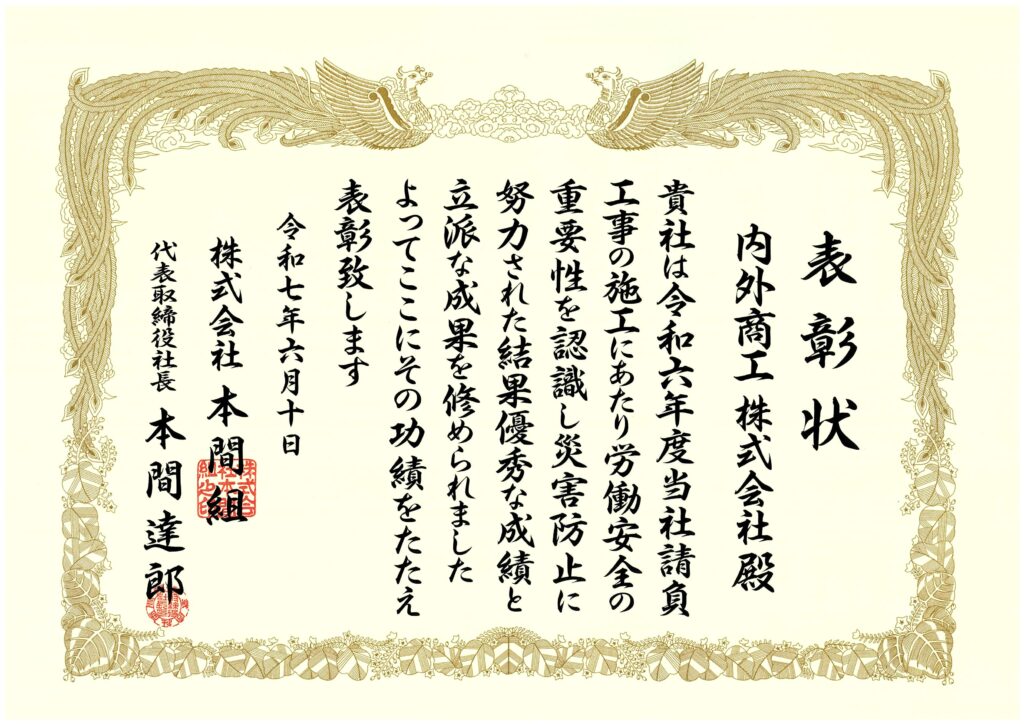 表彰状
内外商工株式会社殿
貴社は令和六年度当社請負
工事の施工にあたり労働安全の
重要性を認識し災害防止に
努力された結果優秀な成績と
立派な成果を修められました
よってここにその功績をたたえ
表彰致します
令和七年六月十日
株式会社 本間組
代表取締役社長 本間達郎